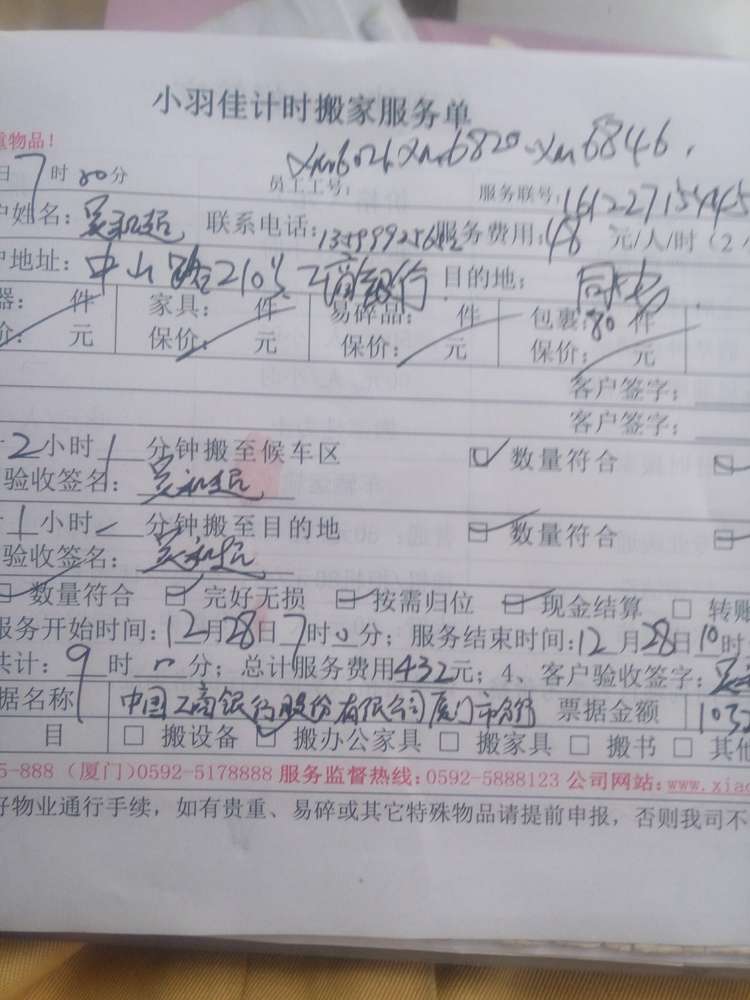 小羽佳计时搬家服务单
重物品！
xm6026 xm6820 xm6846
日7时00分 员工工号： 服务联号：161227154458
户姓名： 联系电话： 服务费用：48 元/人/时（2
户地址：中山路210号工商银行 目的地：
器： 件 家具： 件 易碎品： 件 包裹：80 件
价： 元 保价： 元 保价： 元 保价： 元
客户签字：
客户签字：
2小时1分钟搬至候车区 数量符合
验收签名：
1小时 分钟搬至目的地 数量符合
验收签名：
数量符合 完好无损 按需归位 现金结算 转账
服务开始时间：12月28日7时0分；服务结束时间：12月28日10时
共计：9时0分；总计服务费用432元；4、客户验收签字：
据名称 中国工商银行股份有限公司厦门市分行 票据金额 1032
目 搬设备 搬办公家具 搬家具 搬书 其他
5-888（厦门）0592-5178888 服务监督热线：0592-5888123 公司网站：www.xiao
好物业通行手续，如有贵重、易碎或其它特殊物品请提前申报，否则我司不